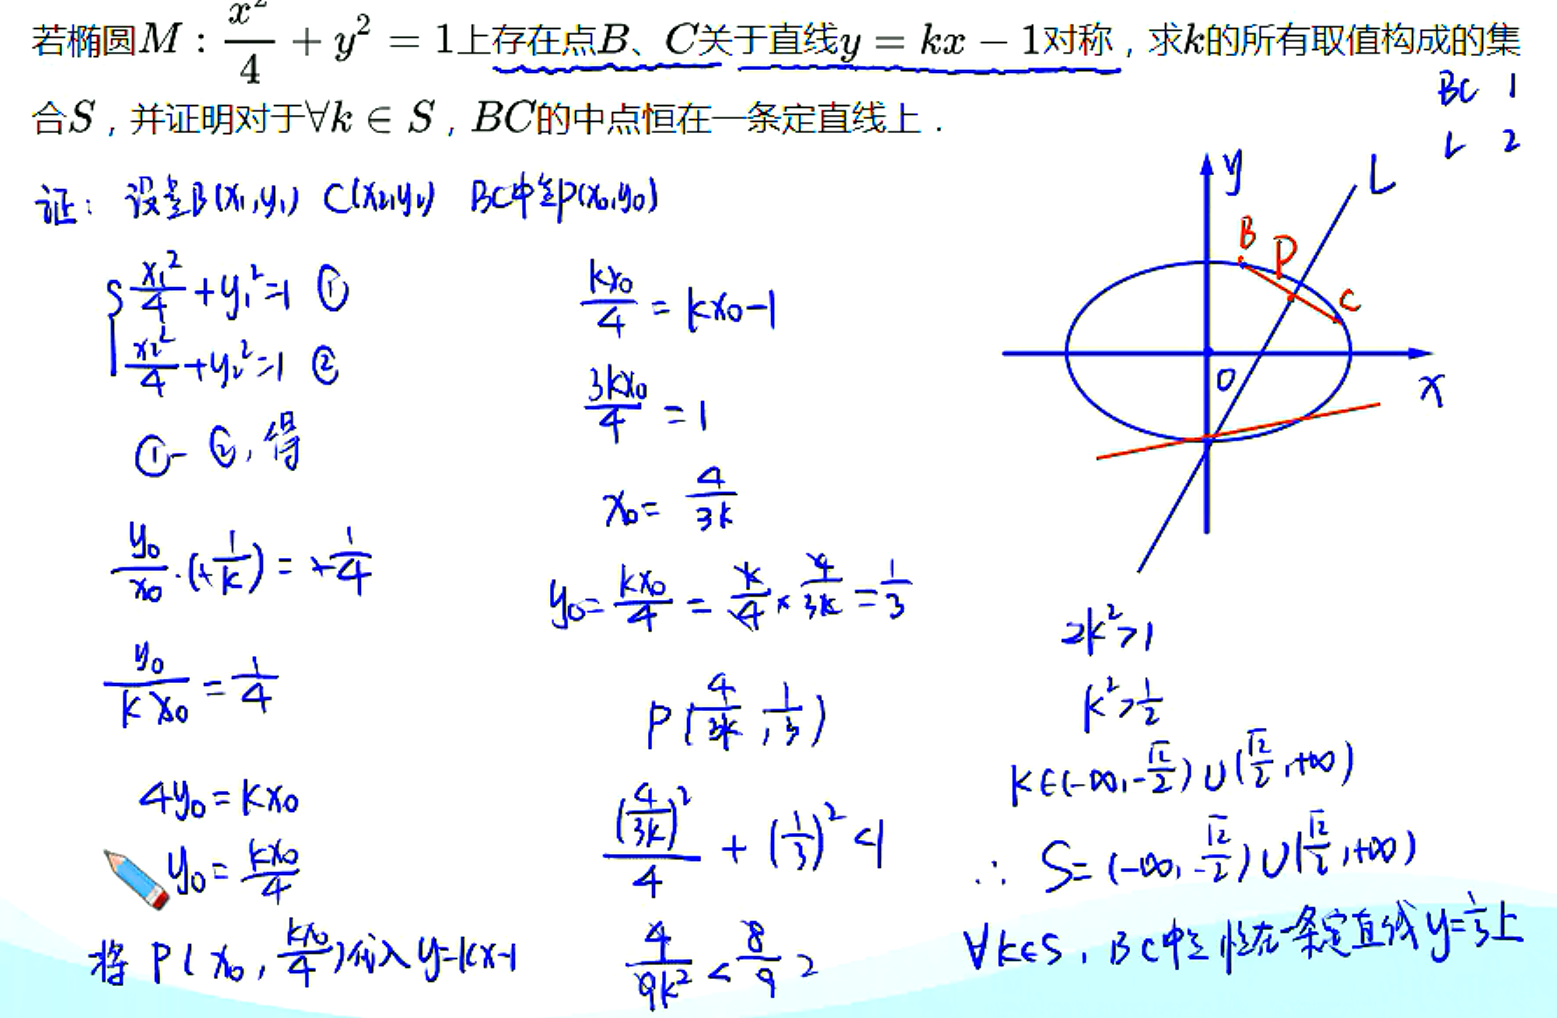 若椭圆M：x²/4 + y² = 1上存在点B、C关于直线y = kx − 1对称，求k的所有取值构成的集
合S，并证明对于∀k ∈ S，BC的中点恒在一条定直线上．
BC 1
L 2
证：设点B(x₁,y₁) C(x₂,y₂) BC中点P(x₀,y₀)
{ x₁²/4 + y₁² = 1 ①
x₂²/4 + y₂² = 1 ②
① - ②, 得
y₀/x₀ · (+1/k) = +1/4
y₀/(k x₀) = 1/4
4y₀ = kx₀
y₀ = kx₀/4
将 P(x₀, kx₀/4)代入 y=kx-1
kx₀/4 = kx₀-1
3kx₀/4 = 1
x₀ = 4/(3k)
y₀ = kx₀/4 = k/4 × 4/(3k) = 1/3
P(4/(3k), 1/3)
(4/(3k))²/4 + (1/3)² < 1
4/(9k²) < 8/9 2
y
L
B
P
C
O
x
2k² > 1
k² > 1/2
k∈(-∞, -√2/2)∪(√2/2, +∞)
∴ S = (-∞, -√2/2)∪(√2/2, +∞)
∀k∈S, BC中点恒在一条定直线y=1/3上